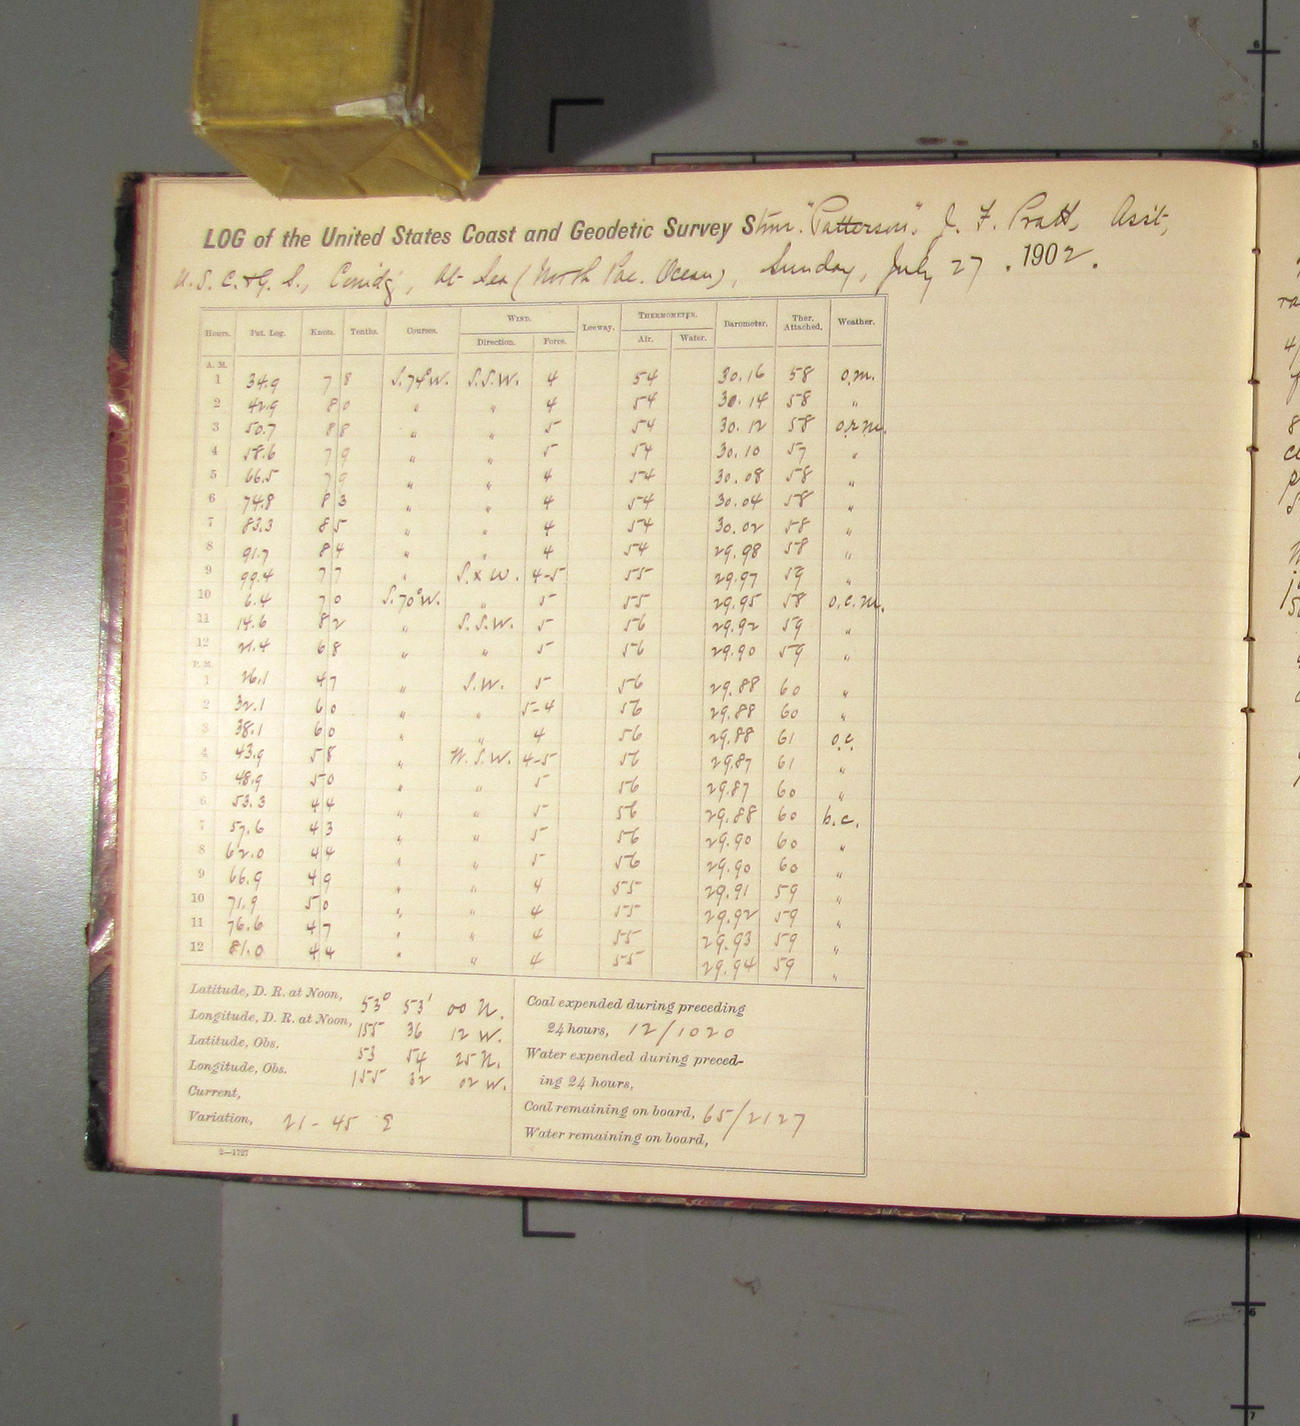 LOG of the United States Coast and Geodetic Survey Stmr. "Patterson". J. F. Pratt, Asst,
U. S. C. & G. S., Comdg, At Sea (North Pac. Ocean), Sunday, July 27, 1902.
Hours. Pat. Log. Knots. Tenths. Courses. WIND. Leeway. THERMOMETER. Barometer. Ther. Attached. Weather.
Direction. Force. Air. Water.
A. M.
1 34.9 7 8 S.74°W. S.S.W. 4 54 30.16 58 o.m.
2 42.9 8 0 " " 4 54 30.14 58 "
3 50.7 8 8 " " 5 54 30.12 58 o.r.m.
4 58.6 7 9 " " 5 54 30.10 57 "
5 66.5 7 9 " " 4 54 30.08 58 "
6 74.8 8 3 " " 4 54 30.04 58 "
7 83.3 8 5 " " 4 54 30.02 58 "
8 91.7 8 4 " " 4 54 29.98 58 "
9 99.4 7 7 " S. x W. 4-5 55 29.97 59 "
10 6.4 7 0 S.70°W. " 5 55 29.95 58 o.c.m.
11 14.6 8 2 " S.S.W. 5 56 29.92 59 "
12 21.4 6 8 " " 5 56 29.90 59 "
P. M.
1 26.1 4 7 " S.W. 5 56 29.88 60 "
2 32.1 6 0 " " 5-4 56 29.88 60 "
3 38.1 6 0 " " 4 56 29.88 61 o.c.
4 43.9 5 8 " W.S.W. 4-5 56 29.87 61 "
5 48.9 5 0 " " 5 56 29.87 60 "
6 53.3 4 4 " " 5 56 29.88 60 b.c.
7 57.6 4 3 " " 5 56 29.90 60 "
8 62.0 4 4 " " 5 56 29.90 60 "
9 66.9 4 9 " " 4 55 29.91 59 "
10 71.9 5 0 " " 4 55 29.92 59 "
11 76.6 4 7 " " 4 55 29.93 59 "
12 81.0 4 4 " " 4 55 29.94 59 "
Latitude, D. R. at Noon, 53° 53' 00 N.
Longitude, D. R. at Noon, 155 36 12 W.
Latitude, Obs. 53 54 25 N.
Longitude, Obs. 155 32 02 W.
Current,
Variation, 21 - 45 E
Coal expended during preceding
24 hours, 12/1020
Water expended during preced-
ing 24 hours,
Coal remaining on board, 65/2127
Water remaining on board,
2—1727